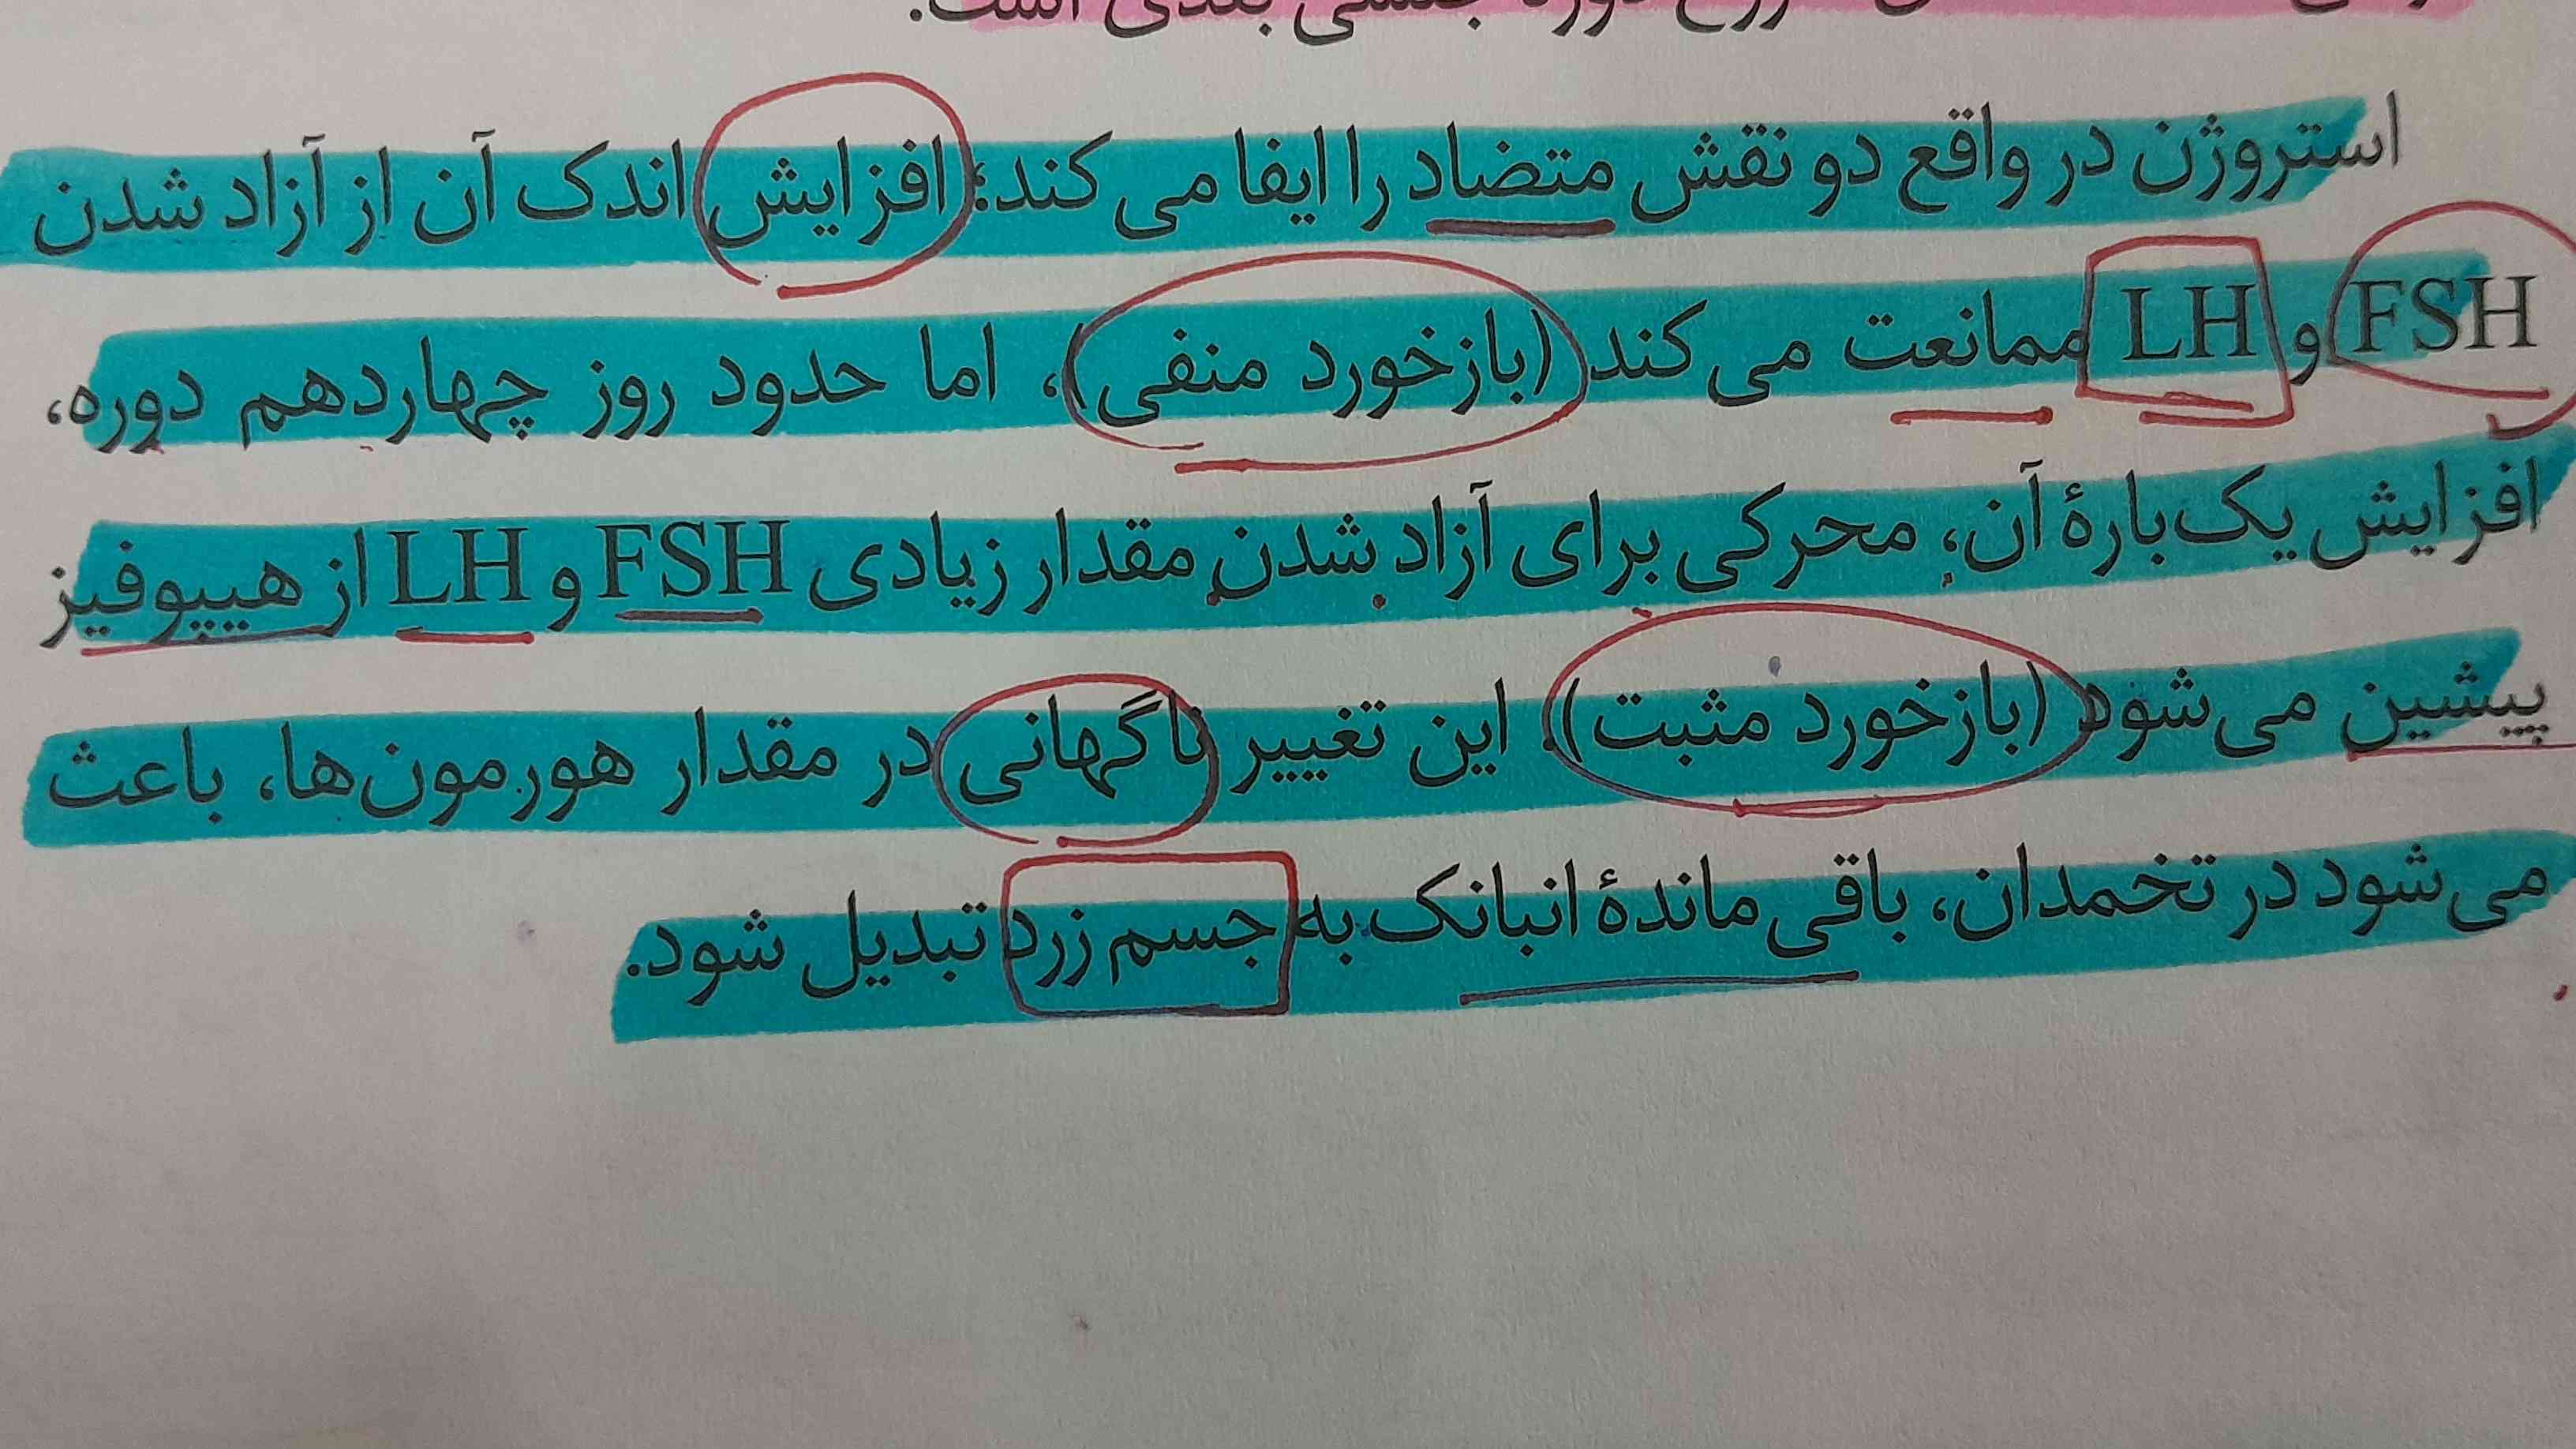 دوره جنسی بعدی است.
استروژن در واقع دو نقش متضاد را ایفا می کند؛ افزایش اندک آن از آزاد شدن
FSH و LH ممانعت می کند (بازخورد منفی)، اما حدود روز چهاردهم دوره،
افزایش یک باره آن، محرکی برای آزاد شدن مقدار زیادی FSH و LH از هیپوفیز
پیشین می شود (بازخورد مثبت). این تغییر ناگهانی در مقدار هورمون ها، باعث
می شود در تخمدان، باقی ماندهٔ انبانک به جسم زرد تبدیل شود.